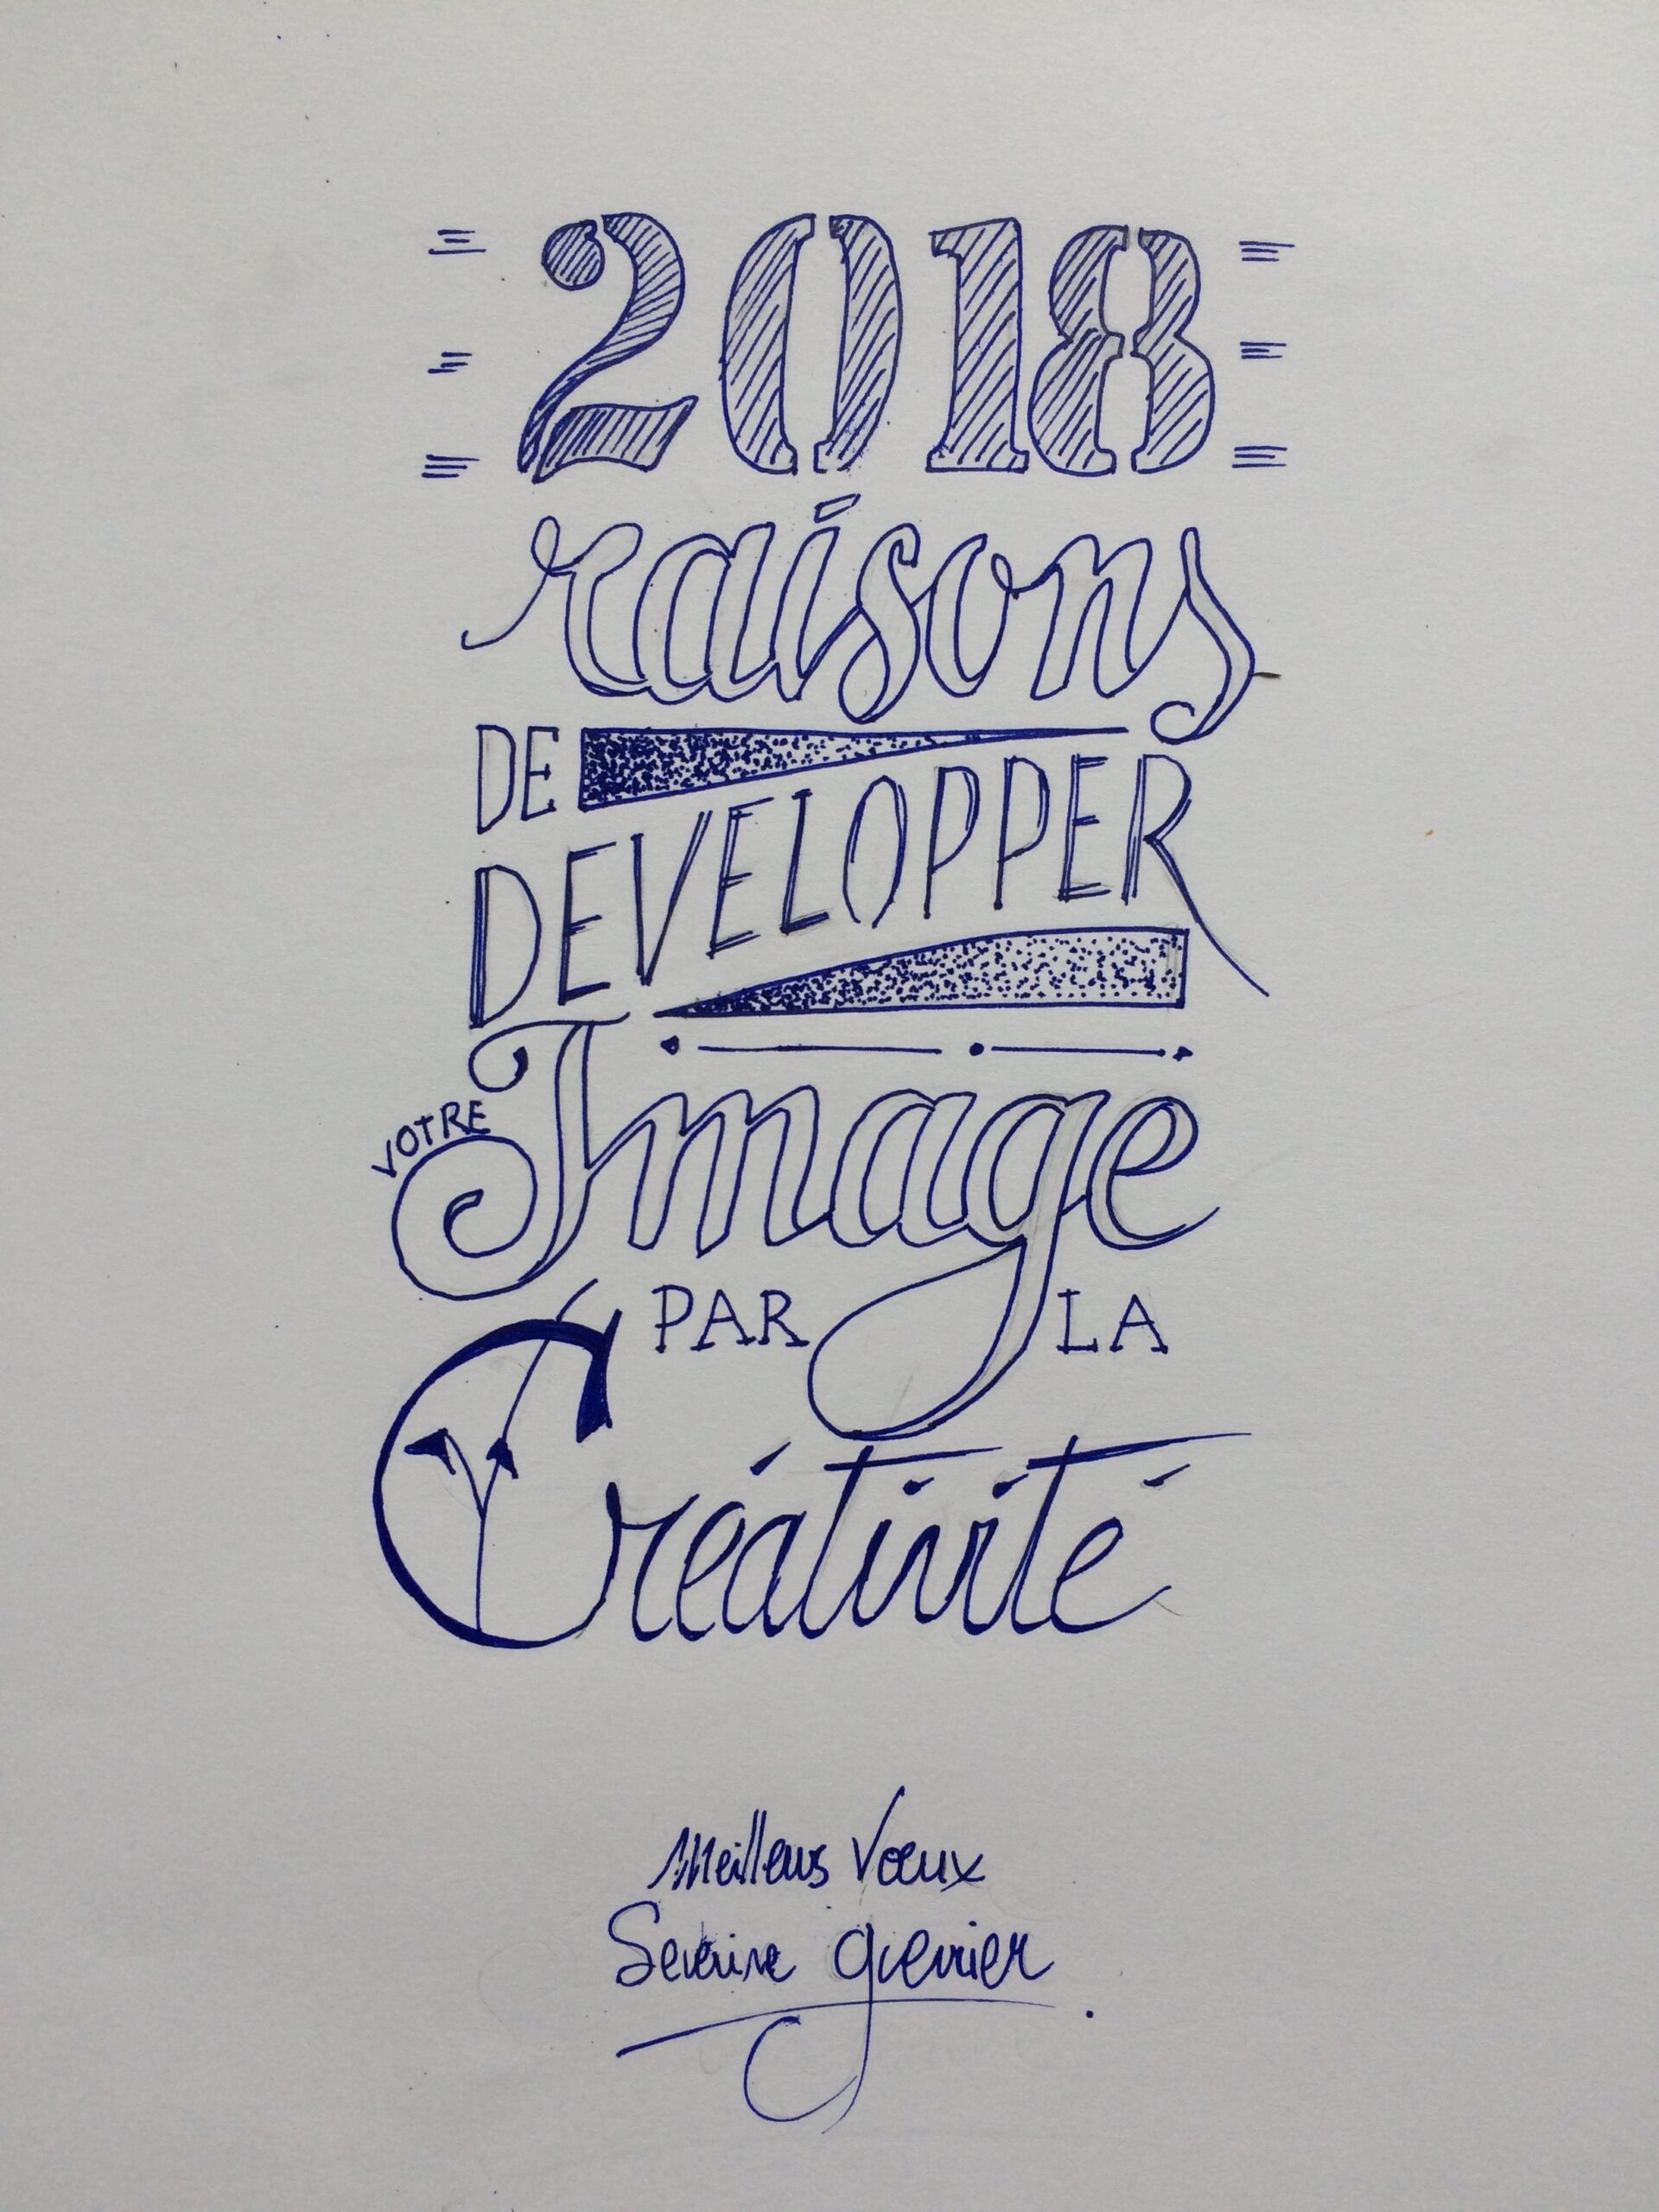 2018
raisons
DE
DEVELOPPER
VOTRE
Image
PAR LA
Créativité
Meilleurs Vœux
Severine